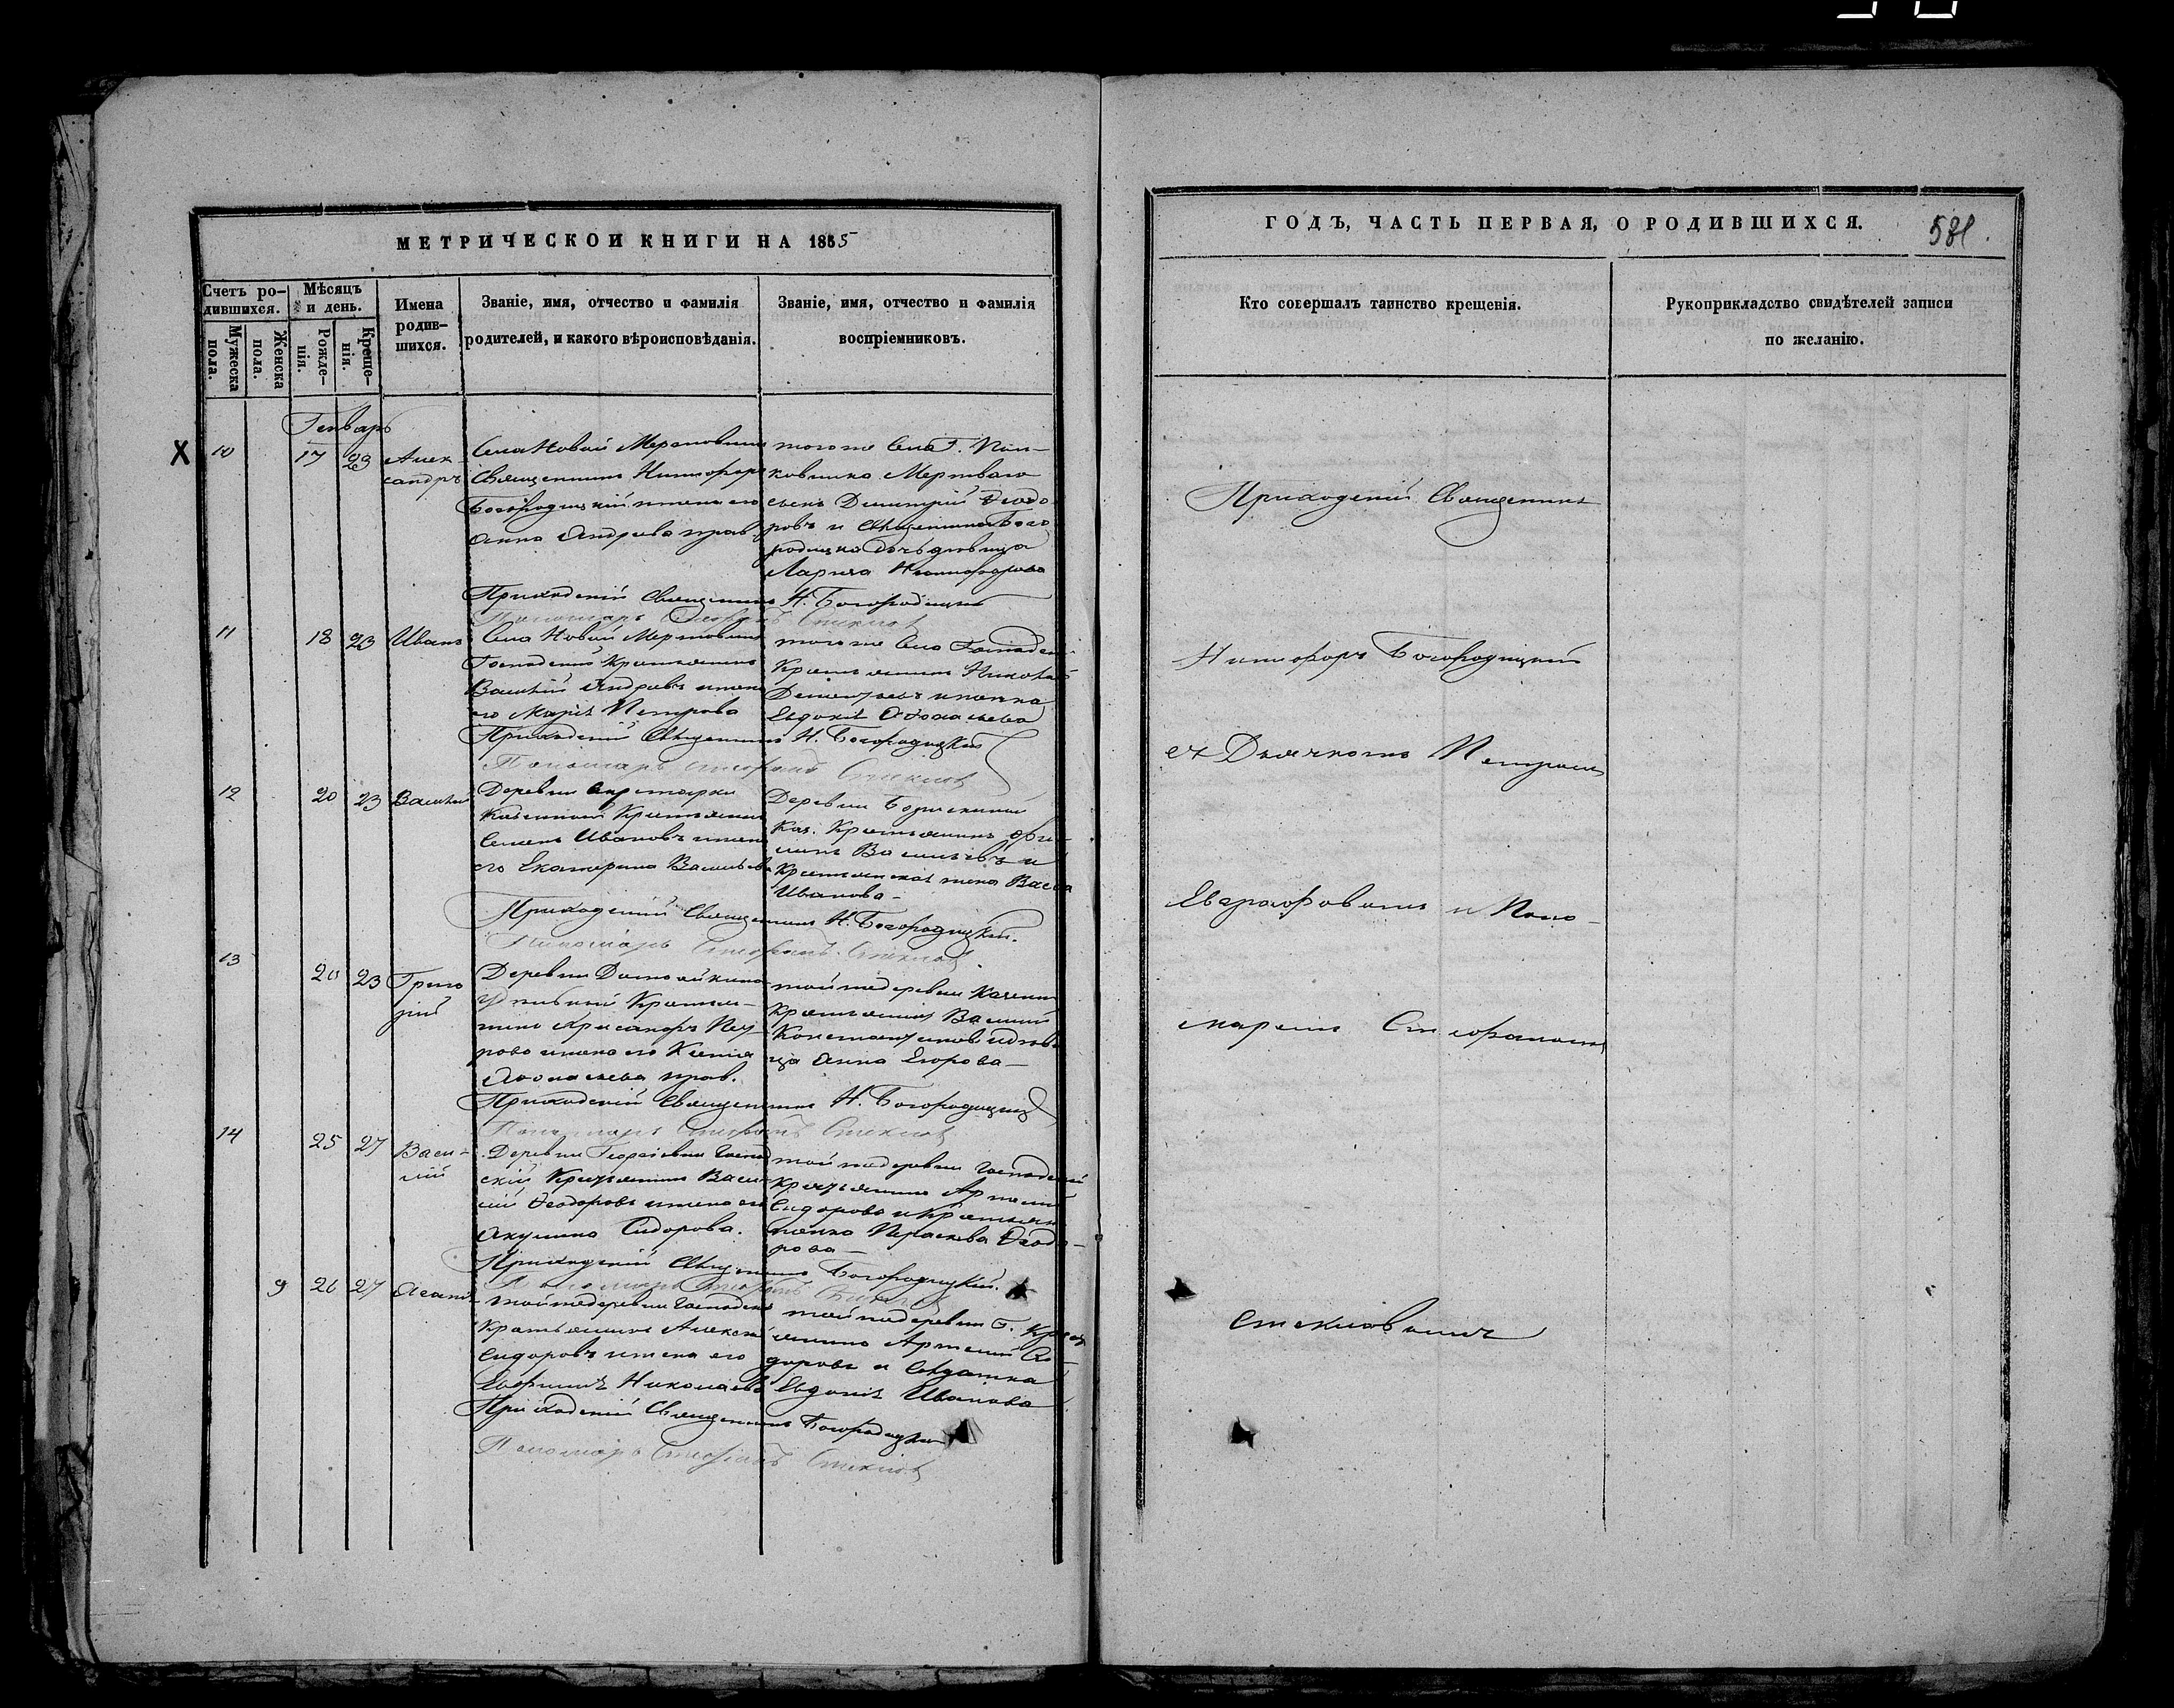 МЕТРИЧЕСКОЙ КНИГИ НА 1865
Счетъ ро-
дившихся.
Мужеска
пола.
Женска
пола.
Мѣсяцъ
и день.
Рожде-
нія.
Креще-
нія.
Имена
родив-
шихся.
Званіе, имя, отчество и фамилія
родителей, и какого вѣроисповѣданія.
Званіе, имя, отчество и фамилія
воспріемниковъ.
Генварь
X
10
17
23
Алек
сандръ
Села Новой
Священникъ Никифоръ
Богородицкій и жена его
Анна Андреева прав.
того же Села Г. Пол-
ковника Мертваго
сынъ Димитрій Ѳеодо
ровъ и Священника Бого
родицка дочь девица
Лариса Никифорова
Приходскій Священникъ Н. Богородицкій
Пономарь Стефанъ Стеклов
11
18
23
Иванъ
Села Новой
Господскій Крестьянинъ
Василій Андревъ и жена
его Марія Петрова
того же Села Господск
Крестьянинъ Николай
Дементьевъ и
Евдокія Аѳонасьева
Приходскій Священникъ Н. Богородицкій
Пономарь Стефанъ Стеклов
12
20
23
Василій
Деревни
Казенной Крестьянинъ
Семенъ Ивановъ и жена
его Екатерина Васильева
Деревни
Каз. Крестьянинъ Фи-
липъ Васильевъ и
Крестьянская жена Васса
Иванова-
Приходскій Священникъ Н. Богородицкій.
Пономарь Стефанъ Стеклов
13
20
23
Григо
рій
Деревни
Удѣльный Крестья-
нинъ Александръ Пет
ровъ и жена его Ксенія
Аѳонасьева прав.
той же деревни Казенн
Крестьянинъ Василій
Константиновъ и деви
ца Анна Егорова-
Приходскій Священникъ Н. Богородицкій
Пономарь Стефанъ Стеклов
14
25
27
Васи-
лій
Деревни Георгіевки Господ
скій Крестьянинъ Васи
лій Ѳеодоровъ и жена его
Акулина Сидорова.
той же деревни Господскій
Крестьянинъ Артемій
Сидоровъ и Крестьян
женка Параскева Ѳеодо-
рова-
Приходскій Священникъ Богородицкій.
Пономарь Стефанъ Стеклов
9
26
27
той же деревни Господскій
Крестьянинъ Алексей
Сидоровъ и жена его
Николаева
той же деревни Г. Крест
янинъ Артемій Си-
доровъ и Солдатка
Евдокія Иванова
Приходскій Священникъ Богородицкій
Пономарь Стефанъ Стеклов
ГОДЪ, ЧАСТЬ ПЕРВАЯ, О РОДИВШИХСЯ.
581.
Кто совершалъ таинство крещенія.
Рукоприкладство свидѣтелей записи
по желанію.
Приходскій Священникъ
Никифоръ Богородицкій
съ Дьячкомъ Петромъ
Евграфовымъ и Поно-
маремъ Стефаномъ
Стекловымъ